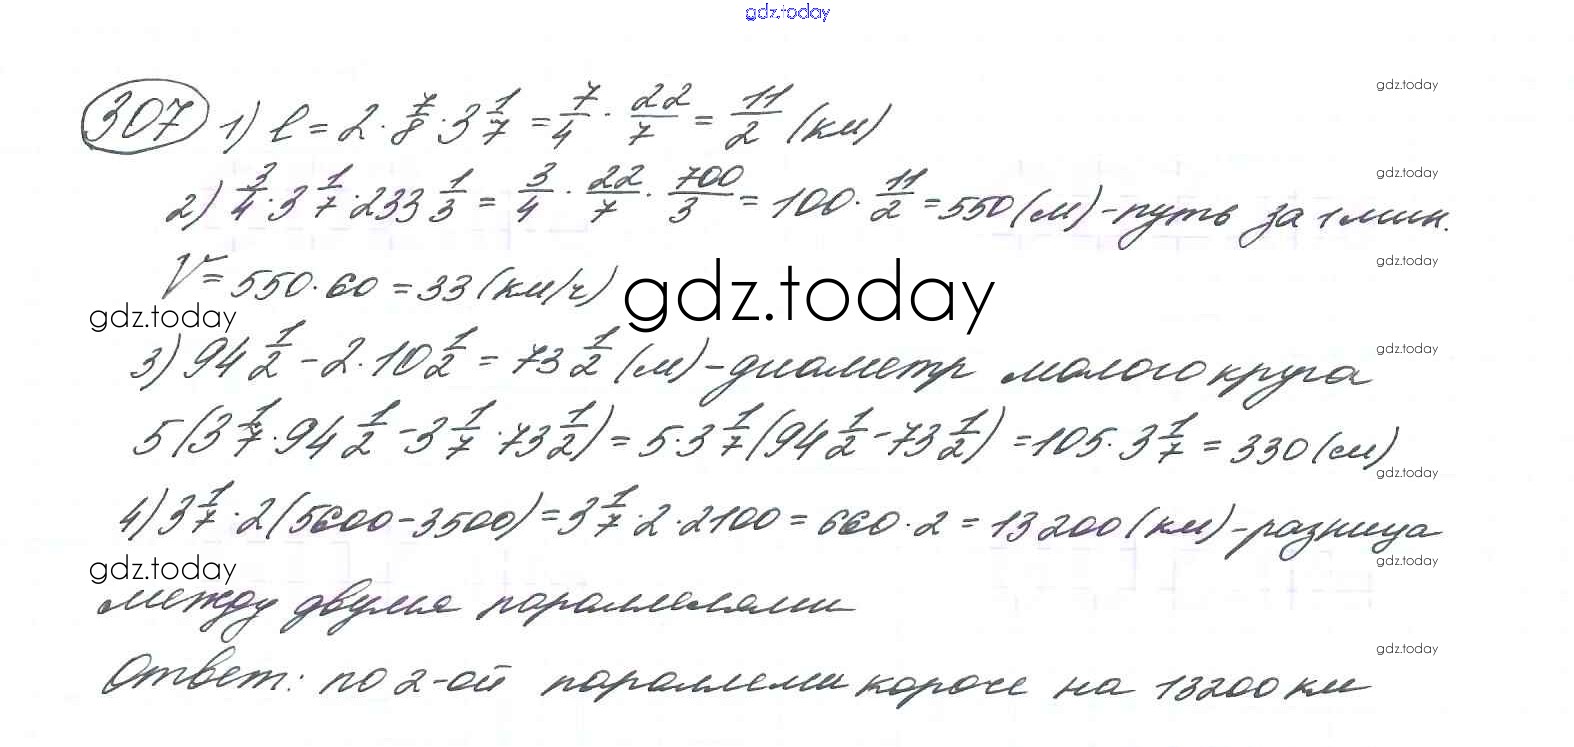 gdz.today
307 1) l = 2 · 7/8 · 3 1/7 = 7/4 · 22/7 = 11/2 (км)
gdz.today
2) 3/4 · 3 1/7 · 233 1/3 = 3/4 · 22/7 · 700/3 = 100 · 11/2 = 550 (м) – путь за 1 мин.
gdz.today
V = 550 · 60 = 33 (км/ч)
gdz.today
gdz.today
gdz.today
3) 94 1/2 – 2 · 10 1/2 = 73 1/2 (м) – диаметр малого круга
gdz.today
5 (3 1/7 · 94 1/2 – 3 1/7 · 73 1/2) = 5 · 3 1/7 (94 1/2 – 73 1/2) = 105 · 3 1/7 = 330 (м)
gdz.today
4) 3 1/7 · 2 (5600 – 3500) = 3 1/7 · 2 · 2100 = 660 · 2 = 13 200 (км) – разница
gdz.today
gdz.today
между двумя параллелями
gdz.today
Ответ: по 2-ой параллели короче на 13200 км